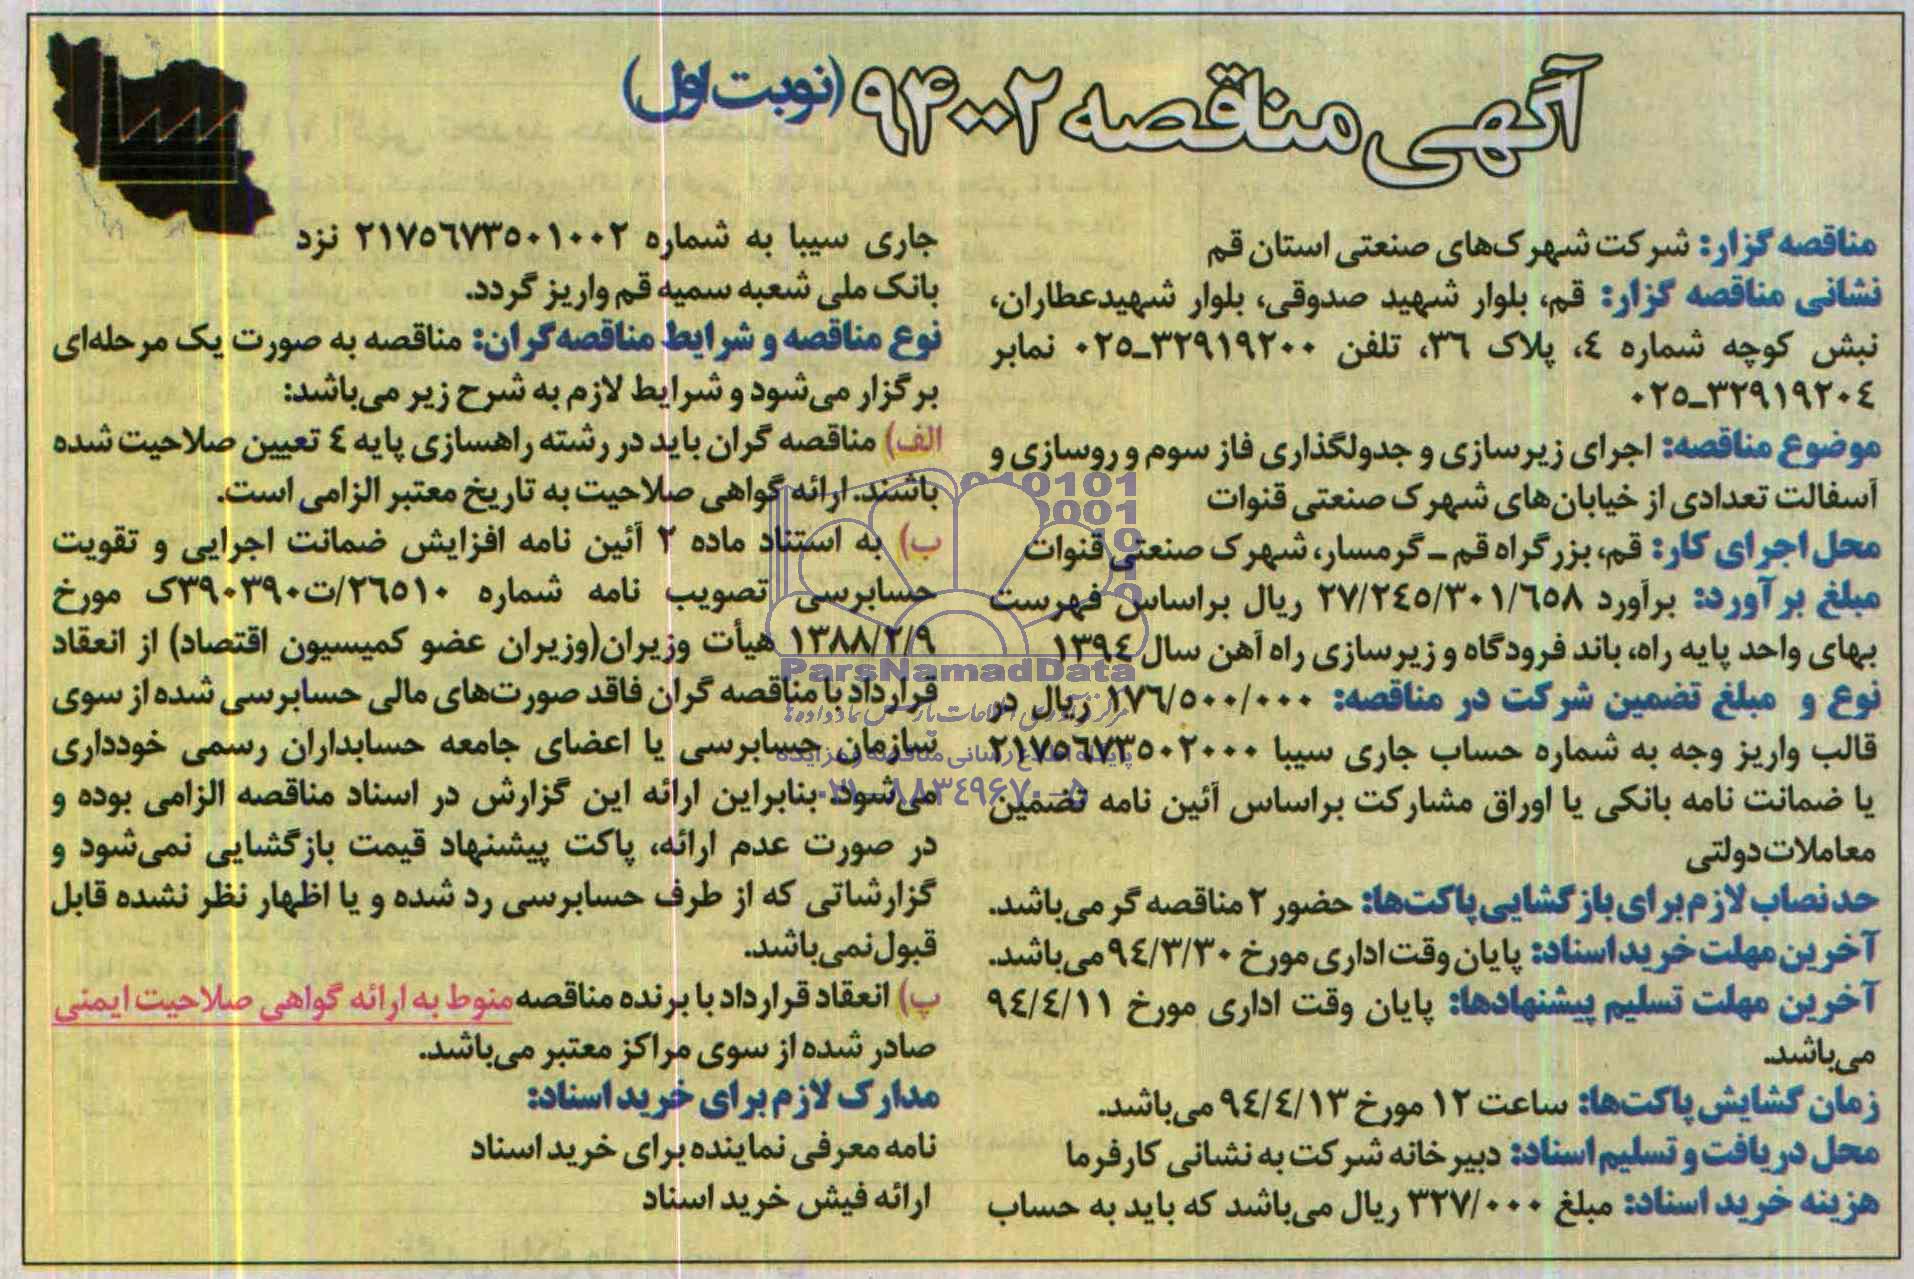 آگهی مناقصه ۰۰۲-۹۴ (نوبت اول)
مناقصه گزار: شرکت شهرک‌های صنعتی استان قم
نشانی مناقصه گزار: قم، بلوار شهید صدوقی، بلوار شهیدعطاران،
نبش کوچه شماره ٤، پلاک ۳٦، تلفن ۳۲۹۱۹۲۰۰-۰۲۵ نمابر
۰۲۵-۳۲۹۱۹۲۰٤
موضوع مناقصه: اجرای زیرسازی و جدولگذاری فاز سوم و روسازی و
آسفالت تعدادی از خیابان‌های شهرک صنعتی قنوات
محل اجرای کار: قم، بزرگراه قم - گرمسار، شهرک صنعتی قنوات
مبلغ برآورد: برآورد ۲۷/۲٤۵/۳۰۱/٦۵۸ ریال براساس فهرست
بهای واحد پایه راه، باند فرودگاه و زیرسازی راه آهن سال ۱۳۹٤
نوع و مبلغ تضمین شرکت در مناقصه: ۱۷٦/۵۰۰/۰۰۰ ریال در
قالب واریز وجه به شماره حساب جاری سیبا ۲۱۷۵٦۷۳۵۰۲۰۰۰
یا ضمانت نامه بانکی یا اوراق مشارکت براساس آئین نامه تضمین
معاملات دولتی
حد نصاب لازم برای بازگشایی پاکت‌ها: حضور ۲ مناقصه گر می‌باشد.
آخرین مهلت خرید اسناد: پایان وقت اداری مورخ ۹٤/۳/۳۰ می‌باشد.
آخرین مهلت تسلیم پیشنهادها: پایان وقت اداری مورخ ۹٤/٤/۱۱
می‌باشد.
زمان گشایش پاکت‌ها: ساعت ۱۲ مورخ ۹٤/٤/۱۳ می‌باشد.
محل دریافت و تسلیم اسناد: دبیرخانه شرکت به نشانی کارفرما
هزینه خرید اسناد: مبلغ ۳۲۷/۰۰۰ ریال می‌باشد که باید به حساب
جاری سیبا به شماره ۲۱۷۵٦۷۳۵۰۱۰۰۲ نزد
بانک ملی شعبه سمیه قم واریز گردد.
نوع مناقصه و شرایط مناقصه‌گران: مناقصه به صورت یک مرحله‌ای
برگزار می‌شود و شرایط لازم به شرح زیر می‌باشد:
الف) مناقصه گران باید در رشته راهسازی پایه ٤ تعیین صلاحیت شده
باشند. ارائه گواهی صلاحیت به تاریخ معتبر الزامی است.
ب) به استناد ماده ۲ آئین نامه افزایش ضمانت اجرایی و تقویت
حسابرسی تصویب نامه شماره ۲٦۵۱۰/ت۳۹۰۳۹۰ک مورخ
۱۳۸۸/۲/۹ هیأت وزیران(وزیران عضو کمیسیون اقتصاد) از انعقاد
قرارداد با مناقصه گران فاقد صورت‌های مالی حسابرسی شده از سوی
سازمان حسابرسی یا اعضای جامعه حسابداران رسمی خودداری
می‌شود. بنابراین ارائه این گزارش در اسناد مناقصه الزامی بوده و
در صورت عدم ارائه، پاکت پیشنهاد قیمت بازگشایی نمی‌شود و
گزارشاتی که از طرف حسابرسی رد شده و یا اظهار نظر نشده قابل
قبول نمی‌باشد.
پ) انعقاد قرارداد با برنده مناقصه منوط به ارائه گواهی صلاحیت ایمنی
صادر شده از سوی مراکز معتبر می‌باشد.
مدارک لازم برای خرید اسناد:
نامه معرفی نماینده برای خرید اسناد
ارائه فیش خرید اسناد
ParsNamadData
پایگاه اطلاع رسانی مناقصه و مزایده
۰۲۱-۸۸۳٤۹٦۷۰-۵